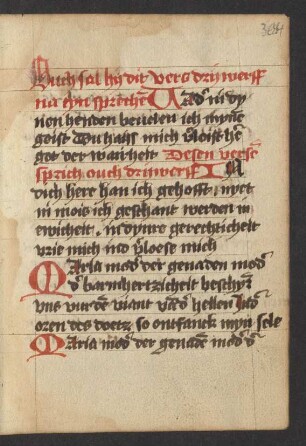 Auch sal hij dit vers drijwerff
na eyn sprechē Vad' in dy
nen henden beuelen ich myne
geist Du hais mich v'loist he
got der warheit Desen verse
sprich ouch drijwerff IN
dich here han ich gehofft, nyet
in mois ich geschant werden in
ewicheit, in dynre gerechticheit
vrie mich ind v'loese mich
Maria mod' der genaden mod'
d' barmhertzicheit beschyr'
vns vur dē viant vā d' hellen
oren des doetz, so ontfanck myn sele
Maria mod' der genadē mod' d'